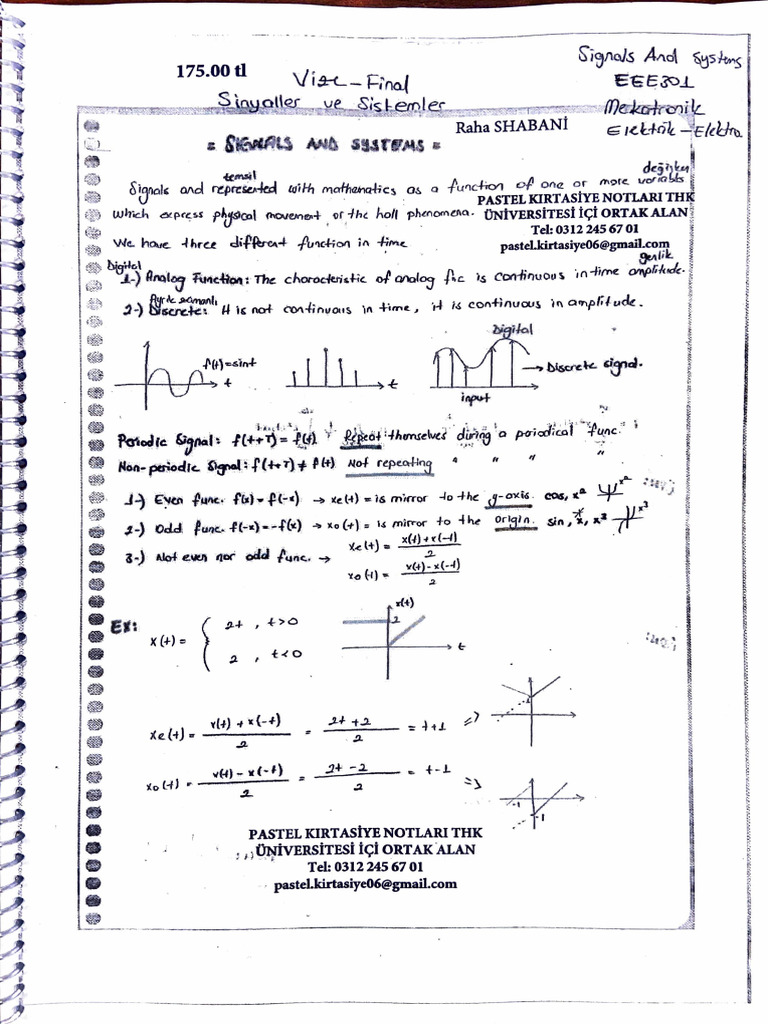 175.00 tl
Vize - Final
Sinyaller ve Sistemler
Signals And Systems
EEE301
Mekatronik
Elektrik - Elektro.
Raha SHABANİ
= SIGNALS AND SYSTEMS =
temsil
değişken
Signals and represented with mathematics as a function of one or more variables
PASTEL KIRTASİYE NOTLARI THK
which express physical movement or the hall phenomena.
ÜNİVERSİTESİ İÇİ ORTAK ALAN
Tel: 0312 245 67 01
We have three different function in time
pastel.kirtasiye06@gmail.com
genlik
Digital
1-) Analog Function: The characteristic of analog fnc is continuous in time amplitude.
Ayrık zamanlı
2-) Discrete: It is not continuous in time, it is continuous in amplitude.
Digital
f(t)=sint
t
t
Discrete signal.
input
Periodic Signal: f(t+T) = f(t) Repeat themselves during a periodical func.
Non-periodic Signal: f(t+T) ≠ f(t) Not repeating " " " "
1-) Even func. f(x) = f(-x) → xe(t) = is mirror to the y-axis. cos, x² x²
2-) Odd func. f(-x) = -f(x) → xo(t) = is mirror to the origin. sin, x, x³ x³
3-) Not even nor odd func. → xe(t) = x(t) + x(-t) / 2
xo(t) = x(t) - x(-t) / 2
Ex:
x(t) = { 2t , t>0
2 , t<0
x(t)
2
t
xe(t) = x(t) + x(-t) / 2 = 2t + 2 / 2 = t+1 =>
xo(t) = x(t) - x(-t) / 2 = 2t - 2 / 2 = t-1 =>
-1
-1
PASTEL KIRTASİYE NOTLARI THK
ÜNİVERSİTESİ İÇİ ORTAK ALAN
Tel: 0312 245 67 01
pastel.kirtasiye06@gmail.com